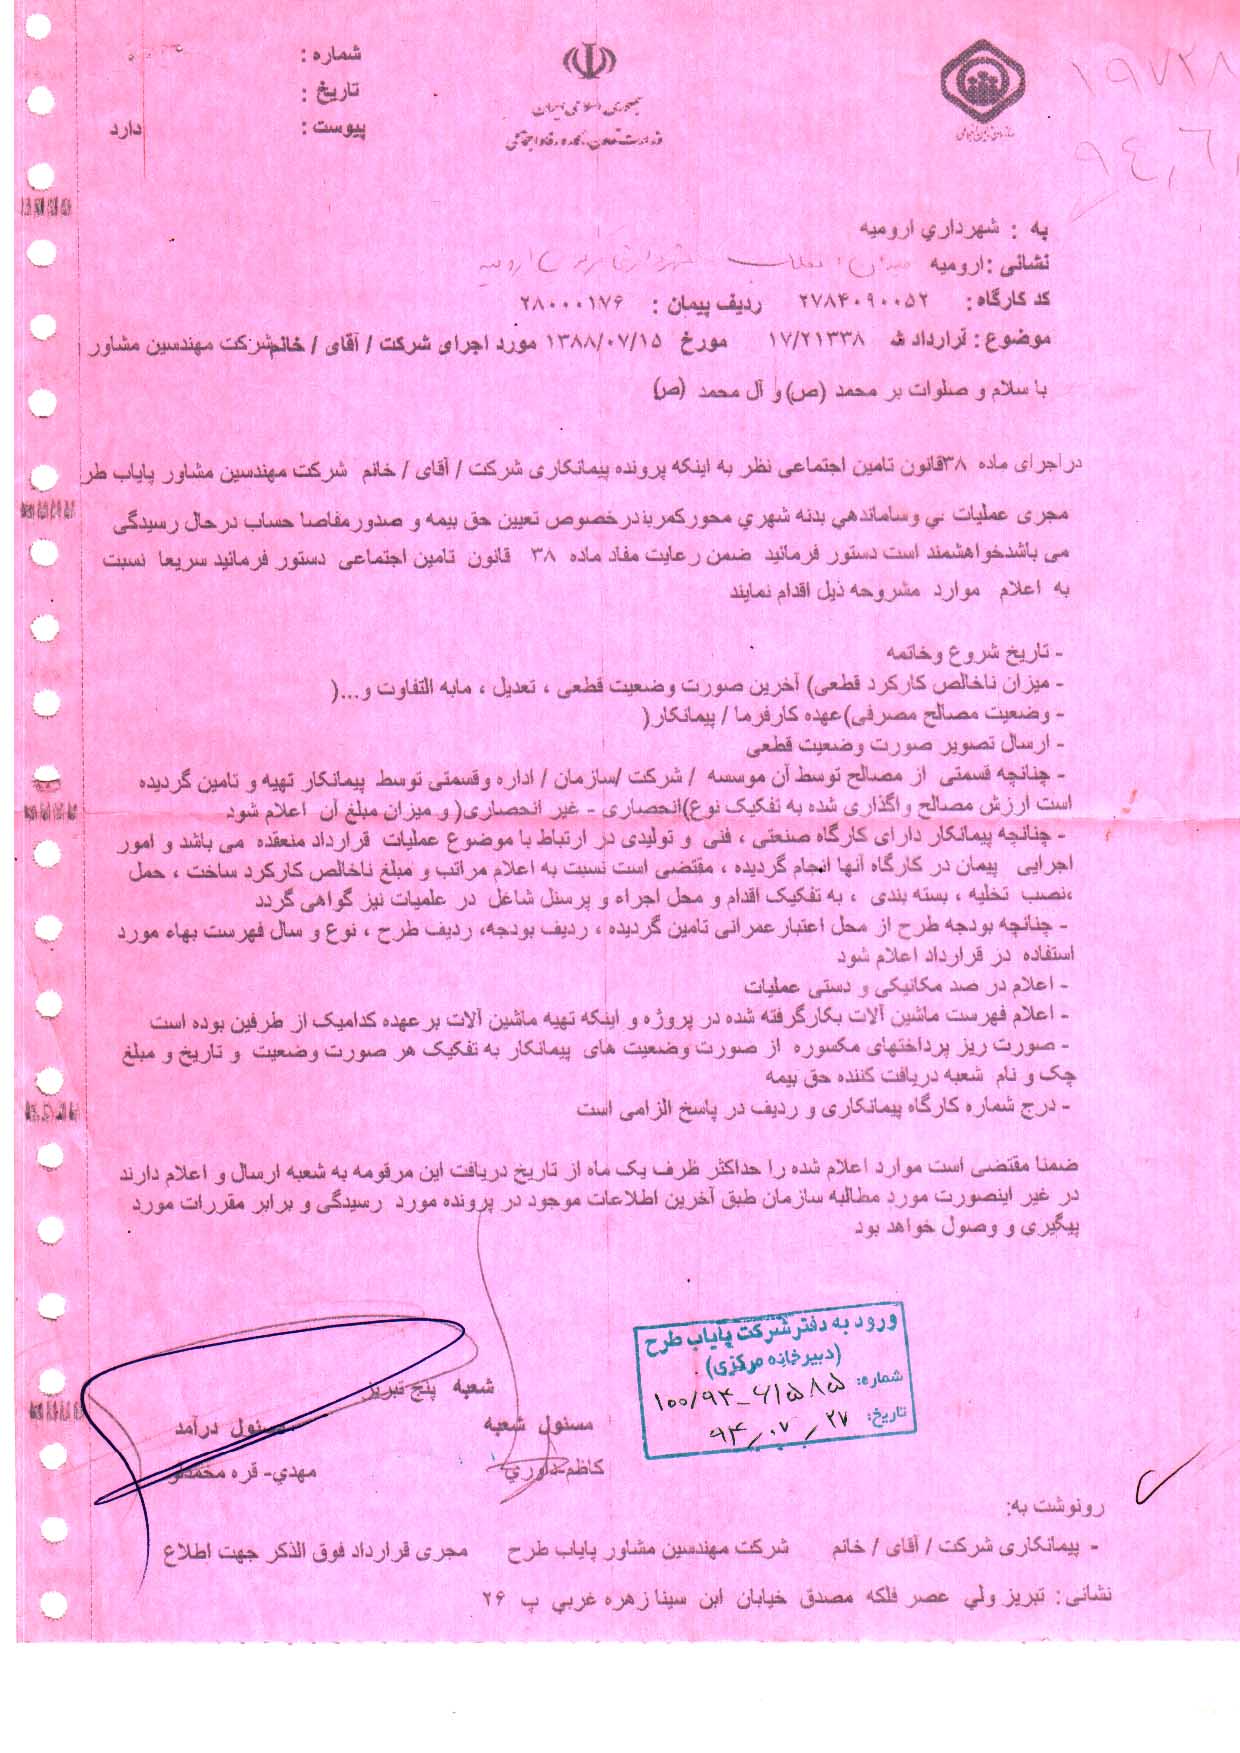 شماره :
تاریخ :
پیوست : دارد
جمهوری اسلامی ایران
وزارت تعاون، کار و رفاه اجتماعی
سازمان تامین اجتماعی
۱۹۷۳۸
به : شهرداري ارومیه
نشانی : ارومیه میدان انقلاب شهرداری ارومیه
کد کارگاه : ۲۷۸۴۰۹۰۰۵۲ ردیف پیمان : ۲۸۰۰۰۱۷۶
موضوع : قرارداد ش ۱۷/۲۱۳۳۸ مورخ ۱۳۸۸/۰۷/۱۵ مورد اجرای شرکت / آقای / خانم شرکت مهندسین مشاور
با سلام و صلوات بر محمد (ص) و آل محمد (ص)
در اجرای ماده ۳۸ قانون تامین اجتماعی نظر به اینکه پرونده پیمانکاری شرکت / آقای / خانم شرکت مهندسین مشاور پایاب طر
مجری عملیات ني وساماندهي بدنه شهري محور کمربند درخصوص تعیین حق بیمه و صدور مفاصا حساب درحال رسیدگی
می باشد خواهشمند است دستور فرمائید ضمن رعایت مفاد ماده ۳۸ قانون تامین اجتماعی دستور فرمائید سریعا نسبت
به اعلام موارد مشروحه ذیل اقدام نمایند
- تاریخ شروع وخاتمه
- میزان ناخالص کارکرد قطعی) آخرین صورت وضعیت قطعی ، تعدیل ، مابه التفاوت و...(
- وضعیت مصالح مصرفی)عهده کارفرما / پیمانکار(
- ارسال تصویر صورت وضعیت قطعی
- چنانچه قسمتی از مصالح توسط آن موسسه / شرکت /سازمان / اداره وقسمتی توسط پیمانکار تهیه و تامین گردیده
است ارزش مصالح واگذاری شده به تفکیک نوع)انحصاری - غیر انحصاری( و میزان مبلغ آن اعلام شود
- چنانچه پیمانکار دارای کارگاه صنعتی ، فنی و تولیدی در ارتباط با موضوع عملیات قرارداد منعقده می باشد و امور
اجرایی پیمان در کارگاه آنها انجام گردیده ، مقتضی است نسبت به اعلام مراتب و مبلغ ناخالص کارکرد ساخت ، حمل
،نصب تخلیه ، بسته بندی ، به تفکیک اقدام و محل اجراه و پرسنل شاغل در علمیات نیز گواهی گردد
- چنانچه بودجه طرح از محل اعتبار عمرانی تامین گردیده ، ردیف بودجه، ردیف طرح ، نوع و سال فهرست بهاء مورد
استفاده در قرارداد اعلام شود
- اعلام در صد مکانیکی و دستی عملیات
- اعلام فهرست ماشین آلات بکارگرفته شده در پروژه و اینکه تهیه ماشین آلات برعهده کدامیک از طرفین بوده است
- صورت ریز پرداختهای مکسوره از صورت وضعیت های پیمانکار به تفکیک هر صورت وضعیت و تاریخ و مبلغ
چک و نام شعبه دریافت کننده حق بیمه
- درج شماره کارگاه پیمانکاری و ردیف در پاسخ الزامی است
ضمنا مقتضی است موارد اعلام شده را حداکثر ظرف یک ماه از تاریخ دریافت این مرقومه به شعبه ارسال و اعلام دارند
در غیر اینصورت مورد مطالبه سازمان طبق آخرین اطلاعات موجود در پرونده مورد رسیدگی و برابر مقررات مورد
پیگیری و وصول خواهد بود
ورود به دفتر شرکت پایاب طرح
(دبیرخانه مرکزی)
شماره: ۱۰۰/۹۴-۶۱۵۸۵
تاریخ: ۹۴/۰۷/۲۷
شعبه پنج تبریز
مسئول شعبه مسئول درآمد
کاظم-داوري مهدي- قره محمدلو
رونوشت به:
- پیمانکاری شرکت / آقای / خانم شرکت مهندسین مشاور پایاب طرح مجری قرارداد فوق الذکر جهت اطلاع
نشانی : تبریز ولي عصر فلکه مصدق خیابان ابن سینا زهره غربي پ ۲۶